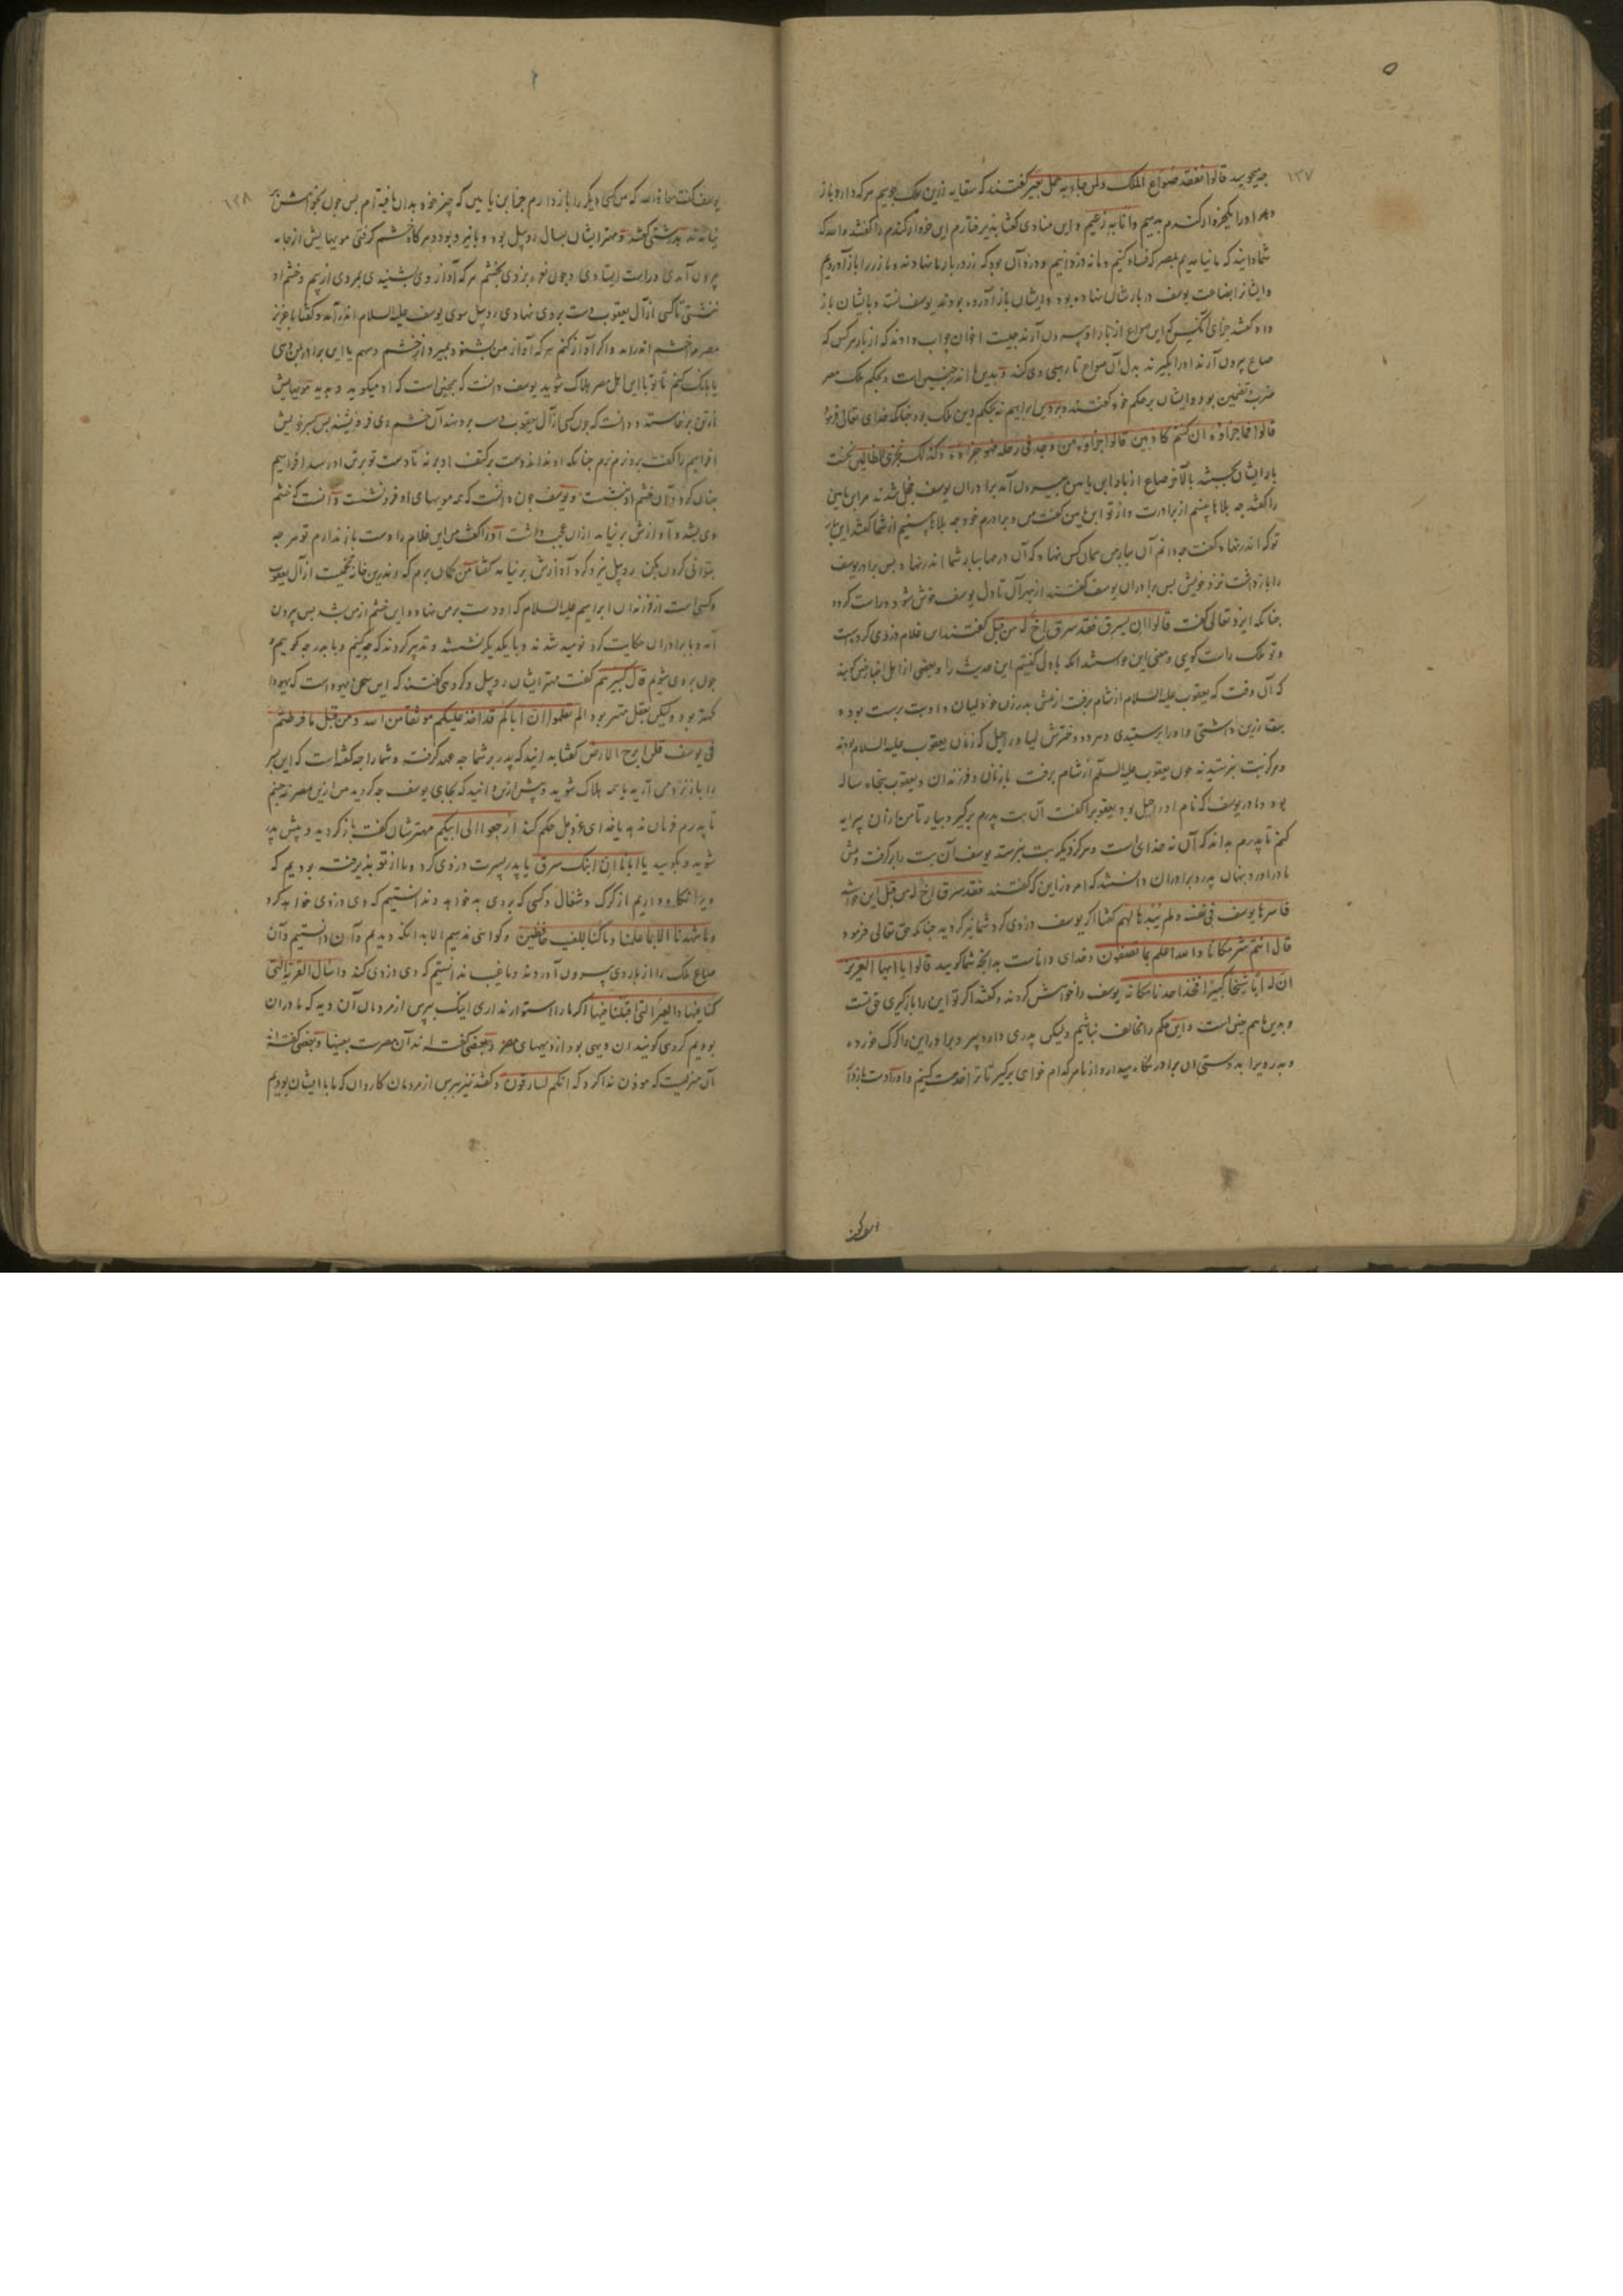 ۱۳۷
چه میجویید قالوا نفقد صواع الملک ولمن جاء به حمل بعیر گفتند که سقایه زرین ملک جوییم هر که دارد باز
دهد او را یکخروار گندم بدهیم وانا به زعیم و این منادی گفتا بذیرفتارم این خروار گندم را گفتند والله که
شما دانید که ما نیامدیم بمصر که فساد کنیم و ما نه دزدانیم
بضاعت یوسف در بارشان نهاده بود و ایشان باز آورده بودند یوسف
صاع بیرون آرند او را بگیرند بدل آن صواع تا رهی وی کند و بدین ما اندر چنین است و بحکم ملک مصر
ضرب و تضمین بود و ایشان بر حکم خود گفتند و بدین ابراهیم نه بحکم دین ملک بود چنانکه خدای تعالی فرمود
قالوا فما جزاؤه ان کنتم کاذبین قالوا جزاؤه من وجد فی رحله فهو جزاؤه وکذلک نجزی الظالمین نخست
بار ایشان بجستند بآخر صاع از بار ابن یامین بیرون آمد برادران یوسف خجل شدند مر ابن یامین
را گفتند چه بلاها بینیم از برادرت و از تو ابن یامین گفت من و برادرم خود چه بلاها بینیم از شما گفتند این بار
تو که اندر نهاد گفت چه دانم آن ببار من همان کس نهاد که آن درمها ببار شما اندر نهاد بس برادر یوسف
را بازداشت نزد خویش بس برادران یوسف گفتند از بهر آن تا دل یوسف خوش شود و راست کرده
چنانکه ایزد تعالی گفت قالوا ان یسرق فقد سرق اخ له من قبل گفتند این غلام دزدی کردست
و تو ملک راست گویی و معنی این خواستند انکه باول گفتیم این حدیث را و بعضی از اهل اخبار چنین گویند
که آن وقت که یعقوب علیه السلام از شام برفت از پیش پدر زن خود لیان و او بت برست بوده
بت زرین داشتی و او را برستیدی و هر دو دخترش لیا و راحیل که زنان یعقوب علیه السلام بودند
و هرگز بت نبرستیدند چون یعقوب علیه السلام از شام برفت با زنان و فرزندان و یعقوب بنجاه ساله
بود و مادر یوسف که نام او راحیل بود یعقوب را گفت آن بت پدرم برگیر و بیار تا من از آن پیرایه
کنم تا پدرم بداند که آن نه خدای است و هرگز دیگر بت نبرستد یوسف آن بت را برگرفت و پیش
مادر آورد بنهان پدر و برادران دانستند که امروز این که گفتند فقد سرق اخ له من قبل این خواستند
فاسرها یوسف فی نفسه ولم یبدها لهم گفتا اگر یوسف دزدی کرد شما نیز کردید چنانکه حق تعالی فرمود
قال انتم شر مکانا والله اعلم بما تصفون و خدای داناست بدانچه شما گویید قالوا یا ایها العزیز
ان له ابا شیخا کبیرا فخذ احدنا مکانه یوسف را خواهش کردند و گفتند اگر تو این را بازگیری حق تست
و بدین ما هم چنین است و این حکم را مخالف نباشیم ولیکن پدری دارد پیر و برادر این را گرگ خورده
۱۳۸
یوسف گفت معاذ الله که من کسی دیگر را بازدارم جز ابن یامین که چیز خود بدان یافته‌ام بس چون بخواهش
نیامدند بدرشتی گفتند و مهتر ایشان بسال روبیل بود و با نیرو بود و هر گاه خشم گرفتی مویهایش از جامه
بیرون آمدی و راست ایستادی و چون نعره بزدی بخشم هر که آواز وی بشنیدی بمردی از بیم و خشم او
ننشستی تا کسی از آل یعقوب دست بر وی نهادی روبیل سوی یوسف علیه السلام اندر آمد و گفتا یا عزیز
مصر مرا خشم اندر آمد و اگر آواز کنم هر که آواز من بشنود بمیرد از خشم و سهم یا این برادر بمن دهی
یا بانک کنم تا تو با این اهل مصر هلاک شوید یوسف دانست که همچنین است که او میگوید و بدید مویهایش
از تن برخاسته و دانست که چون کسی از آل یعقوب دست برو نهد آن خشم وی فرو نشیند بس پسر خویش
افراییم را گفت برو نرم نرم چنانکه او نداند دست بر کتف او بر نه تا دست تو برش او رسد افراییم
چنان کرد و آن خشم او بنشست و یوسف چون دانست که همه مویهای او فرو نشست دانست که خشم
وی بشد و آوازش بر نیاید از آن عجب داشت او را گفت من این غلام را دست باز ندارم تو هر چه
بتوانی کردن بکن روبیل نیرو کرد آوازش بر نیامد گفتا من گمان برم که اندرین خانه تخمیست از آل یعقوب
و کسی است از فرزندان ابراهیم علیه السلام که او دست بر من نهاد و این خشم از من بشد بس بیرون
آمد و با برادران حکایت کرد نومید شدند و با یکدیگر نشستند و تدبیر کردند که چه کنیم و با پدر چه گوییم و
چون بر وی شویم قال کبیرهم گفت مهتر ایشان روبیل و گروهی گفتند که این سخن یهودا است که یهودا
کهتر بود ولیکن بعقل مهتر بود الم تعلموا ان اباکم قد اخذ علیکم موثقا من الله ومن قبل ما فرطتم
فی یوسف فلن ابرح الارض گفتا بدانید که پدر بر شما چه عهد گرفت و شما را چه گفتا است که این پسر
را باز نزد من آرید یا همه هلاک شوید و پیش ازین دانید که بجای یوسف چه کردید من ازین مصر نه جنبم
تا پدرم فرمان ندهد یا خدای عز و جل حکم کند ارجعوا الی ابیکم مهترشان گفت بازگردید و پیش پدر
شوید و بگویید یا ابانا ان ابنک سرق یا پدر پسرت دزدی کرد و ما از تو بذیرفته بودیم که
ویرا نگاه داریم از گرگ و شغال و کسی که بر وی بد خواهد و ندانستیم که وی دزدی خواهد کرد
وما شهدنا الا بما علمنا وما کنا للغیب حافظین و گواهی ندهیم الا بدانکه دیدیم و آن دانستیم و آن
صاع ملک را از بار وی بیرون آوردند و ما غیب ندانستیم که وی دزدی کند واسأل القریة التی
کنا فیها والعیر التی اقبلنا فیها اگر ما را استوار نداری اینک ببرس از مردمان آن دیه که ما در آن
بودیم گروهی گویند آن دیهی بود از دیههای مصر و بعضی گفته‌اند آن مصرست بعینها و بعضی گفته‌اند
آن منزلیست که موذن ندا کرد که انکم لسارقون و گفتند نیز ببرس از مردمان کاروان که ما با ایشان بودیم